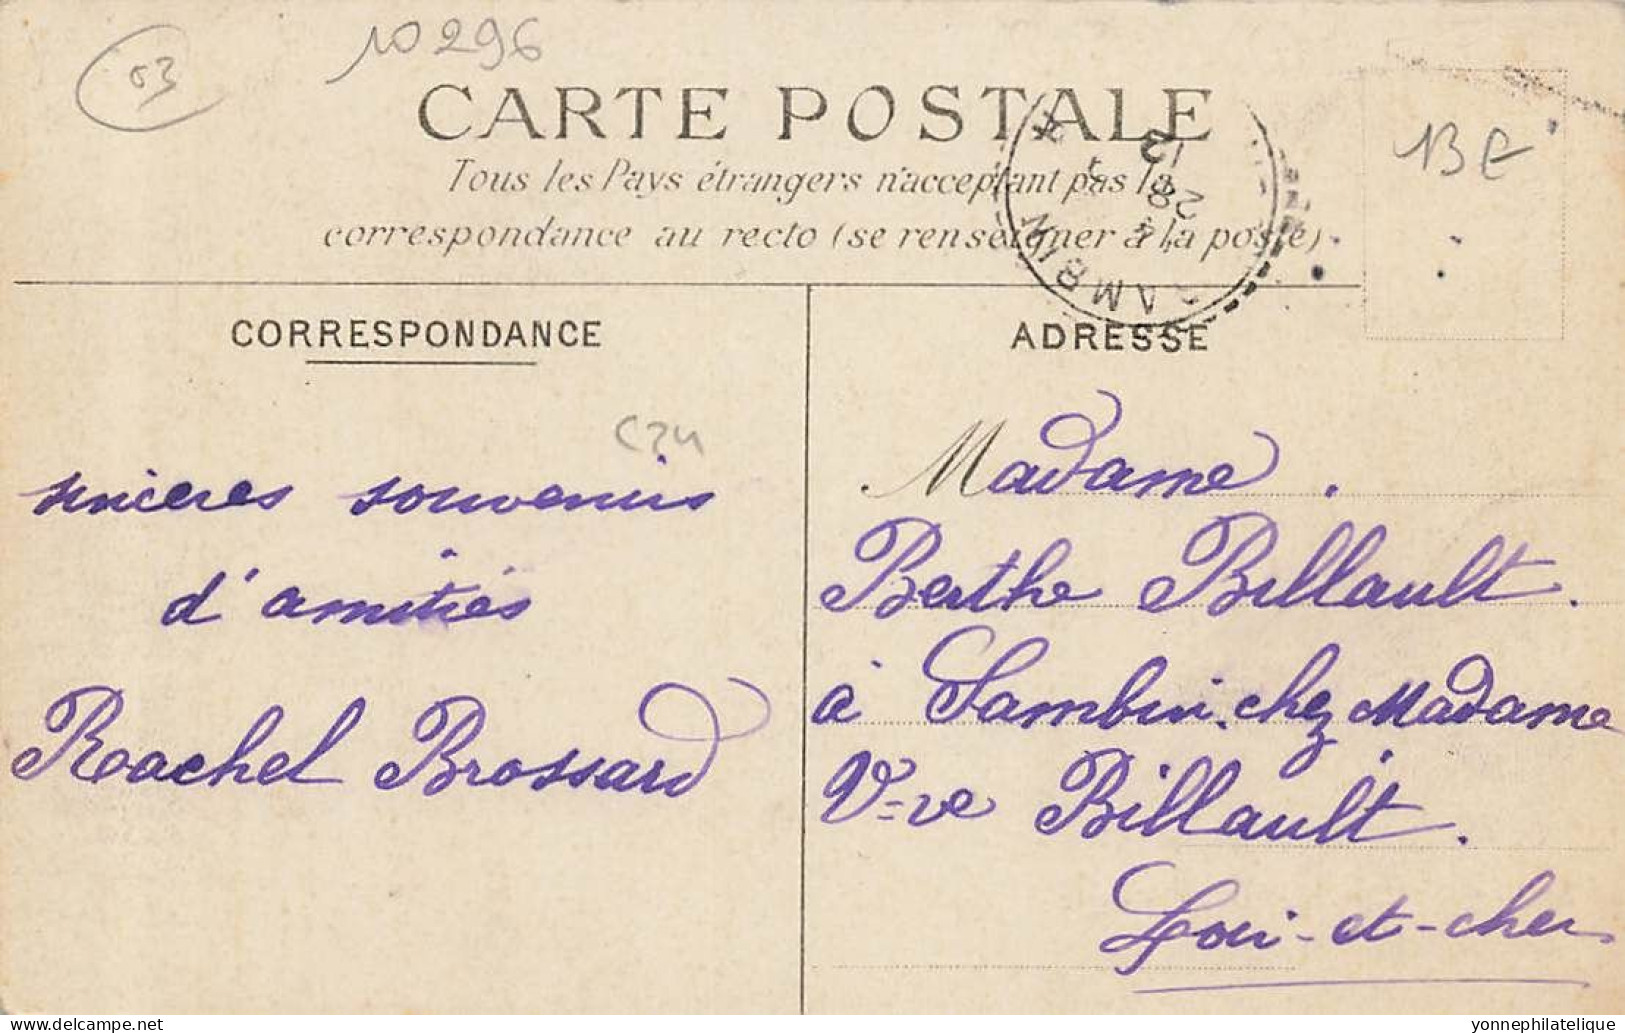 03
10296
CARTE POSTALE
13 E
Tous les Pays étrangers n'acceptant pas la
correspondance au recto (se renseigner à la poste)
SAMBIN
28
12
CORRESPONDANCE
sincères souvenirs
d'amitiés
Rachel Brossard
ADRESSE
Madame.
Berthe Billault.
à Sambin. chez Madame
V-ve Billault.
Loir-et-cher
yonnephilatelique